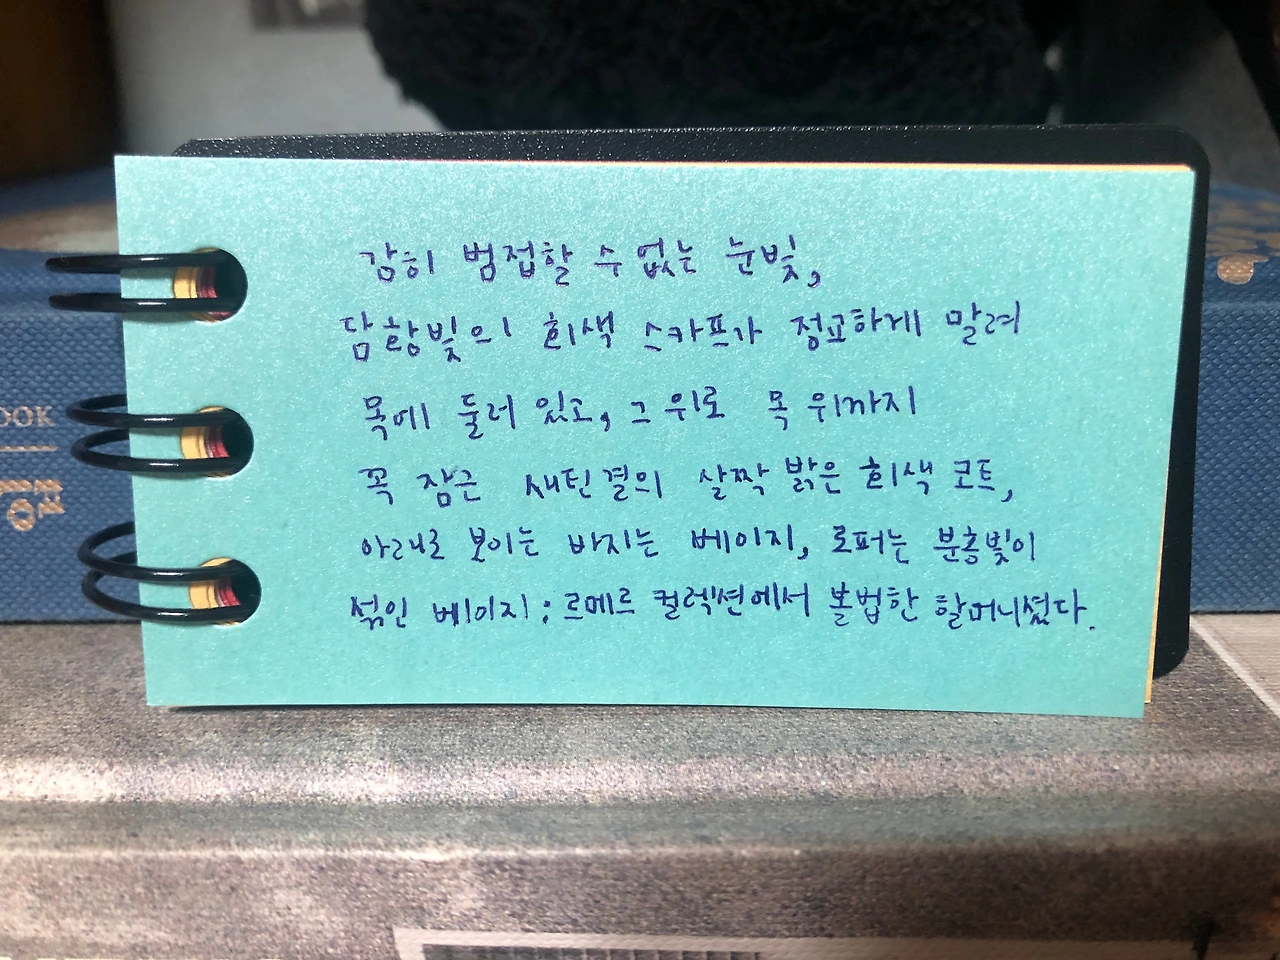 감히 범접할 수 없는 눈빛,
담황빛의 회색 스카프가 정교하게 말려
목에 둘러 있고, 그 위로 목 위까지
꼭 잠근 새틴결의 살짝 밝은 회색 코트,
아래로 보이는 바지는 베이지, 로퍼는 분홍빛이
섞인 베이지 : 르메르 컬렉션에서 볼법한 할머니셨다.
OOK